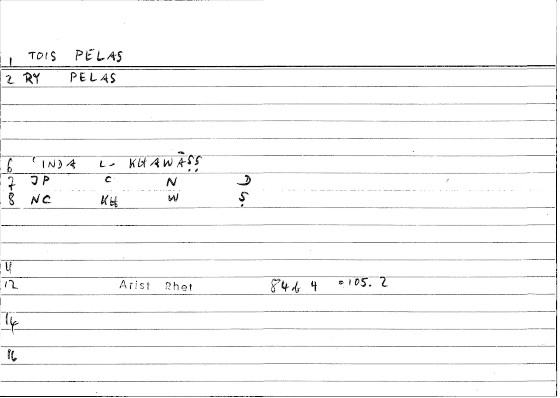 1 TOIS PELAS
2 RY PELAS
6 ʿINDA L- KHAWĀṢṢ
7 JP C N D
8 NC KH W Ṣ
11
12 Arist Rhet 84b 4 =105. 2
14
16